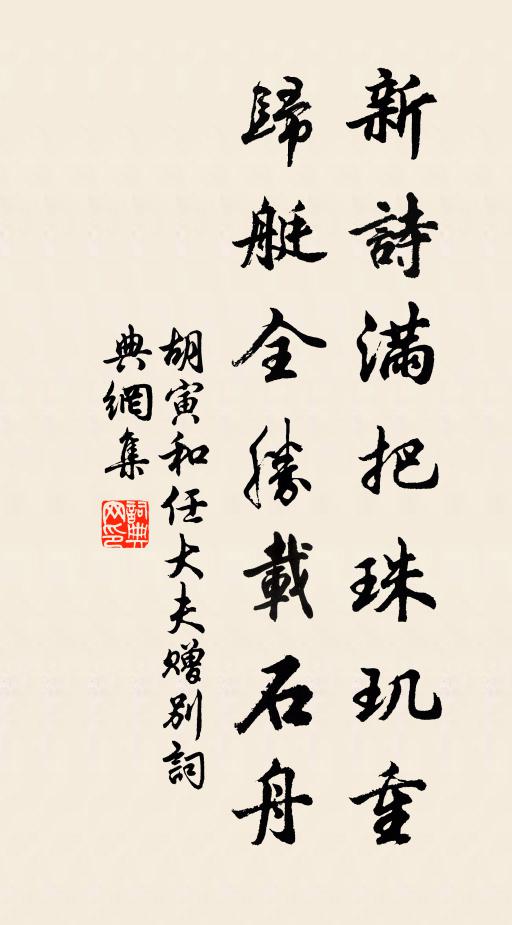 新詩滿把珠玑重
歸艇全勝載石舟
胡寅和任大夫赠別詞
典網集
詞典网印